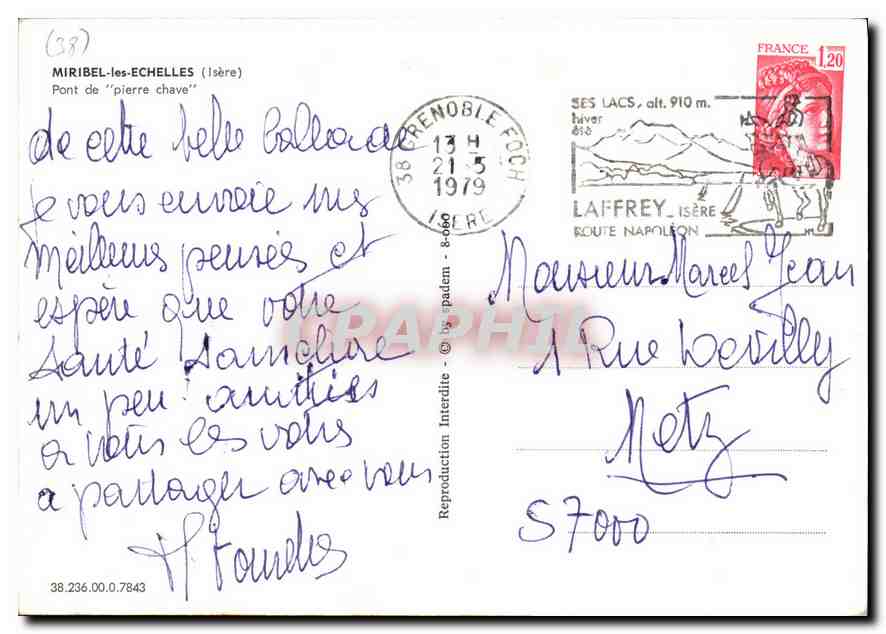 (38)
MIRIBEL-les-ECHELLES (Isère)
Pont de "pierre chave"
de cette belle ballade
je vous envoie mes
meilleures pensées et
espère que votre
santé s'améliore
un peu. amitiés
a vous les votres
a partager avec vous
38.236.00.0.7843
Reproduction Interdite - © by spadem - 8-000
38 GRENOBLE FOCH
13 H
21-5
1979
ISERE
SES LACS, alt. 910 m.
hiver
été
LAFFREY - ISÈRE
ROUTE NAPOLÉON
FRANCE
1,20
Monsieur Marcel Jean
1 Rue Devilly
Metz
57000
CPAPHIL